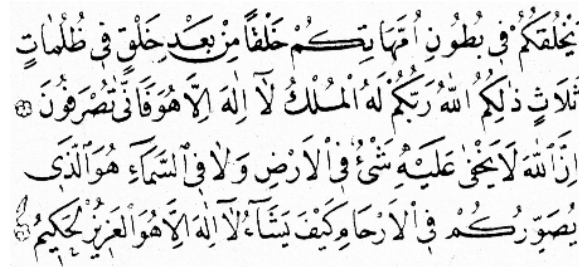 يَخْلُقُكُمْ فِي بُطُونِ اُمَّهَاتِكُمْ خَلْقًا مِنْ بَعْدِ خَلْقٍ فِي ظُلُمَاتٍ
ثَلَاثٍ ذٰلِكُمُ اللّٰهُ رَبُّكُمْ لَهُ الْمُلْكُ لَآ اِلٰهَ اِلَّا هُوَ فَاَنّٰى تُصْرَفُونَ
اِنَّ اللّٰهَ لَا يَخْفٰى عَلَيْهِ شَىْءٌ فِي الْاَرْضِ وَلَا فِي السَّمَآءِ هُوَ الَّذٖى
يُصَوِّرُكُمْ فِي الْاَرْحَامِ كَيْفَ يَشَآءُ لَآ اِلٰهَ اِلَّا هُوَ الْعَزٖيزُ الْحَكٖيمُ